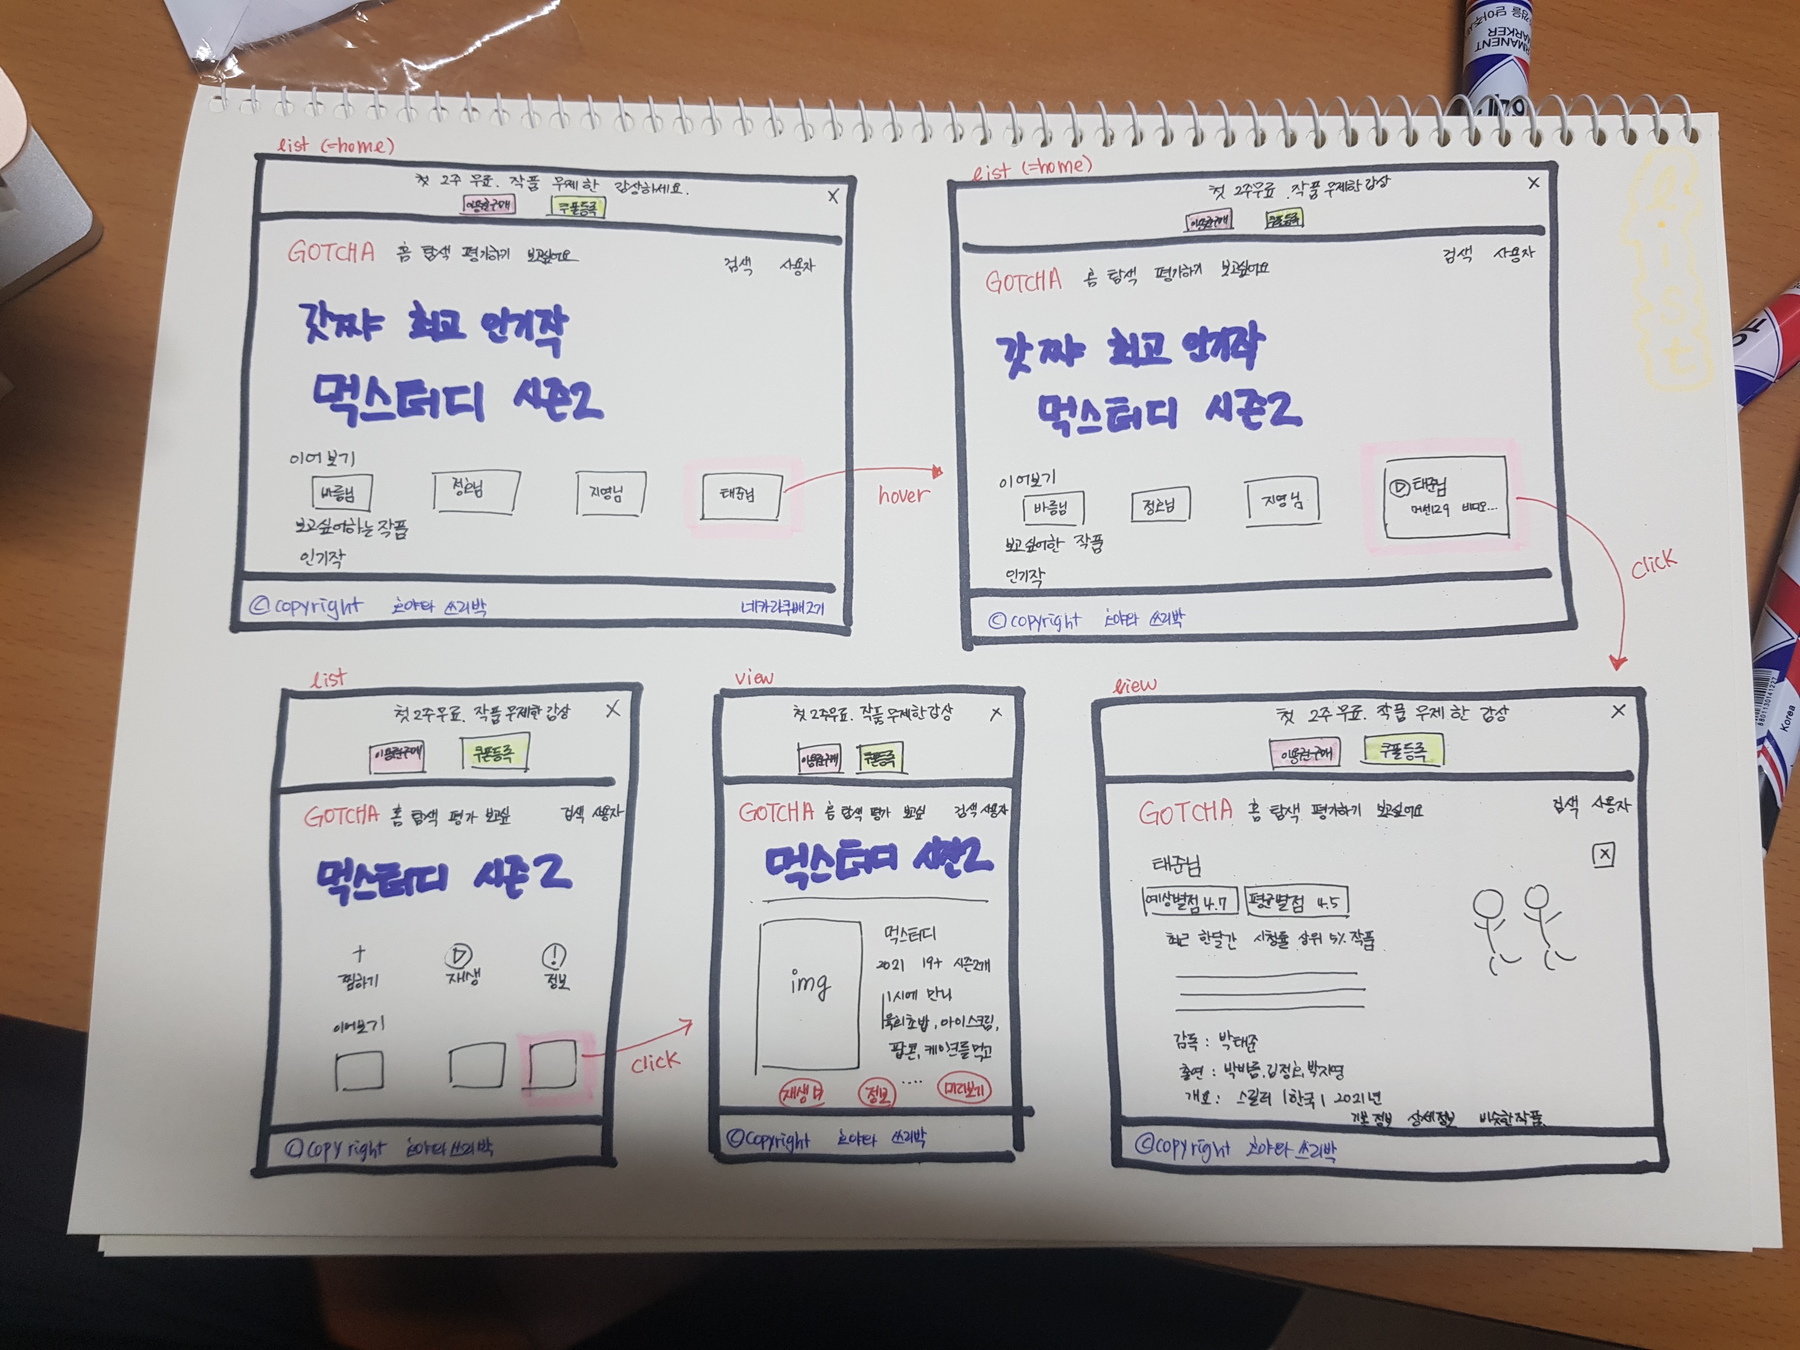 list (=home)
첫 2주 무료. 작품 무제한 감상하세요.
X
이용권구매 쿠폰등록
GOTCHA 홈 탐색 평가하기 보고싶어요
검색 사용자
갓쨔 최고 인기작
먹스터디 시즌2
이어보기
바름님 정호님 지영님 태준님
보고싶어하는 작품
인기작
©copyright 쓰리박
네카라쿠배2기
hover
list (=home)
첫 2주무료. 작품무제한감상
X
이용권구매 쿠폰등록
GOTCHA 홈 탐색 평가하기 보고싶어요
검색 사용자
갓쨔 최고 인기작
먹스터디 시즌2
이어보기
바름님 정호님 지영님 태준님
보고싶어한 작품
인기작
©copyright 쓰리박
click
list
첫2주무료. 작품무제한감상
X
이용권구매 쿠폰등록
GOTCHA 홈 탐색 평가 보고싶
검색 사용자
먹스터디 시즌2
+
찜하기 재생 ! 정보
이어보기
click
©copyright 쓰리박
view
첫2주무료. 작품무제한감상
X
이용권구매 쿠폰등록
GOTCHA 홈 탐색 평가 보고싶
검색 사용자
먹스터디 시즌2
img
먹스터디
2021 19+ 시즌2개
1시에 만나
육회초밥, 아이스크림,
팝콘, 케이크를 먹고
....
재생 정보 미리보기
©copyright 쓰리박
view
첫 2주무료. 작품 무제한 감상
X
이용권구매 쿠폰등록
GOTCHA 홈 탐색 평가하기 보고싶어요
검색 사용자
X
태준님
예상별점 4.7 평균별점 4.5
최근 한달간 시청률 상위 5% 작품
감독 : 박태준
출연 : 박바름, 김정호, 박지영
개요 : 스릴러 | 한국 | 2021년
기본정보 상세정보 비슷한작품
©copyright 쓰리박
PERMANENT
MARKER
Korea